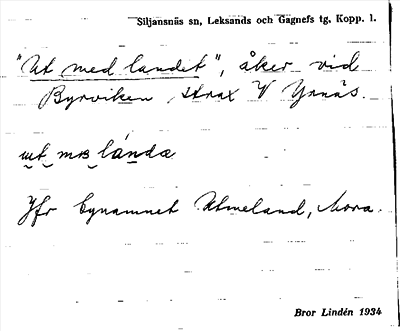 Siljansnäs sn, Leksands och Gagnefs tg, Kopp. l.
"Ut med landet", åker vid
Byrviken strax V Yrnäs.
ut mä lánda
Jfr bynamnet Utmeland, Mora.
Bror Lindén 1934